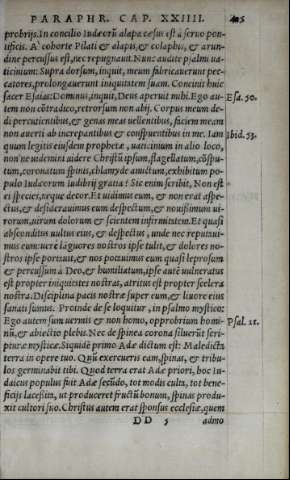 PARAPHR. CAP. XXIIII.
probrijs. In concilio Iudæorũ alapa cæsus est à seruo pon-
tificis. A' cohorte Pilati & alapis, & colaphis, & arun-
dine percussus est, nec repugnauit. Nunc audite psalmi ua-
ticinium: Supra dorsum, inquit, meum fabricauerunt pec-
catores, prolongauerunt iniquitatem suam. Concinit huic
Esaias: Dominus, inquit, Deus aperuit mihi. Ego au-
Esa. 50.
tem non cõtradico, retrorsum non abij. Corpus meum de-
di percutientibus, & genas meas uellentibus, faciem meam
non auerti ab increpantibus & conspuentibus in me. Iam
Ibid. 53.
quum legitis eiusdem prophetæ, uaticinium in alio loco,
non'ne uidemini uidere Christũ ipsum, flagellatum, cõspu-
tum, coronatum spinis, chlamyde amictum, exhibitum po-
pulo Iudæorum ludibrij gratia? Sic enim scribit, Non est
ei species, neque decor. Et uidimus eum, & non erat aspe-
ctus, & desiderauimus eum despectum, & nouissimum ui-
rorum, uirum dolorum & scientem infirmitatem. Et quasi
absconditus uultus eius, & despectus, unde nec reputaui-
mus eum: uerè lãguores nostros ipse tulit, & dolores no-
stros ipse portauit, & nos putauimus eum quasi leprosum
& percussum à Deo, & humiliatum, ipse autẽ uulneratus
est propter iniquitates nostras, atritus est propter scelera
nostra. Disciplina pacis nostræ super eum, & liuore eius
sanati sumus. Proinde de se loquitur, in psalmo mystico:
Ego autem sum uermis & non homo, opprobrium homi-
Psal. 21.
nũ, & abiectio plebis. Nec de spinea corona siluerũt scri-
pturæ mysticæ. Siquidẽ primo Adæ dictum est: Maledicta
terra in opere tuo. Quũ exercueris eam, spinas, & tribu-
los germinabit tibi. Quod terra erat Adæ priori, hoc Iu-
daicus populus fuit Adæ secũdo, tot modis cultus, tot bene-
ficijs lacessitus, ut produceret fructũ bonum, spinas produ-
xit cultori suo. Christus autem erat sponsus ecclesiæ, quem
DD 5
admo